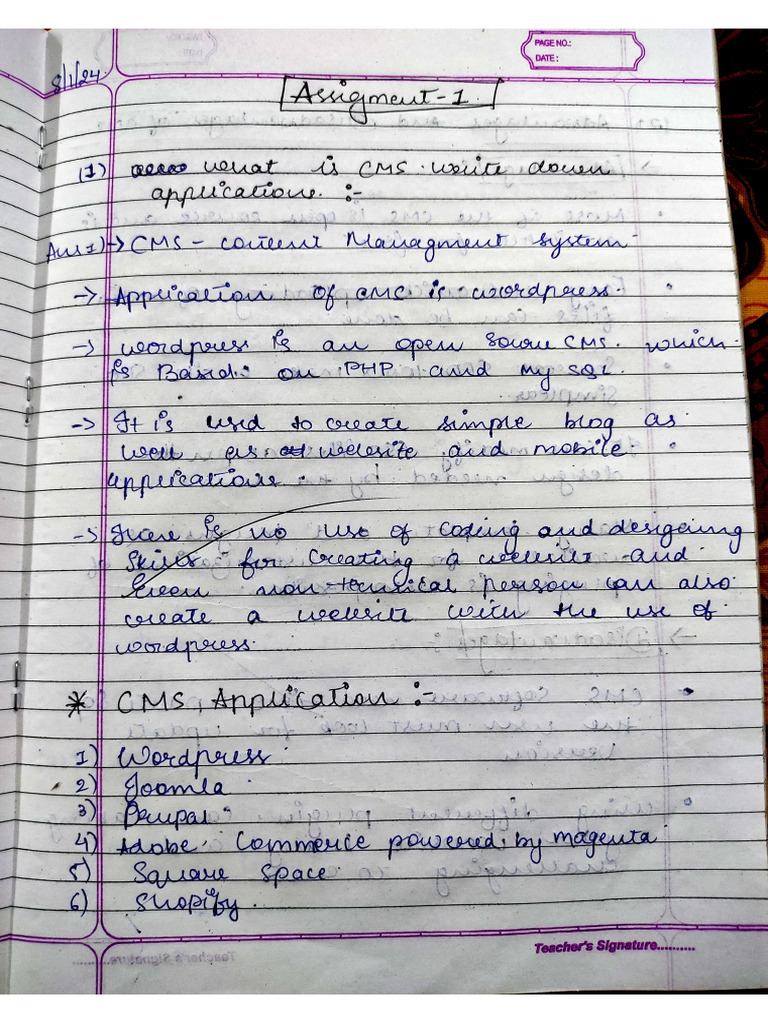 PAGE NO.:
DATE:
8/1/24
Assigment-1.
(1) what is CMS. write down
application. :-
Ans1)→ CMS - content Managment system
→ Application of CMC is wordpress.
→ wordpress is an open Sourse CMS. which
is Based. on PHP and my SQL.
→ It is used to create simple blog as
well as website and mobile
applications.
→ there is no use of coding and desigeing
skills for creating a website and
Even non-tecnical person can also
create a website with the use of
wordpress.
* CMS Application :-
1) Wordpress
2) Joomla
3) Drupal
4) Adobe Commerce powered by magenta
5) Square Space
6) Shopify.
Teacher's Signature..........